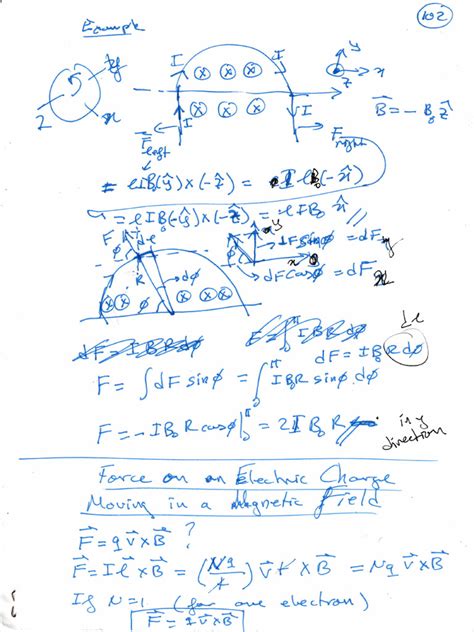 102
Example
I I y
⊗ ⊗ ⊗ z x
y
z x ⊗ ⊗ ⊗ I I B⃗ = - B₀ ẑ
F⃗ left F⃗ right
= l I B₀(ŷ)×(-ẑ) = l I B₀(-x̂)
= l I B₀(-ŷ)×(-ẑ) = l I B₀ x̂ //
F dl y dF sinφ = dF y
φ φ x
R dφ dF cosφ = dF x
⊗⊗ φ ⊗⊗⊗
dl
dF = I B₀ R dφ
F = ∫ dF sinφ = ∫₀^π I B₀ R sinφ dφ
F = - I B₀ R cosφ |₀^π = 2 I B₀ R in y direction
Force on an Electric Charge
Moving in a Magnetic Field
F⃗ = q v⃗ × B⃗ ?
F⃗ = I l⃗ × B⃗ = (Nq/t) v⃗ t × B⃗ = Nq v⃗ × B⃗
If N=1 (for one electron)
F⃗ = q v⃗ × B⃗